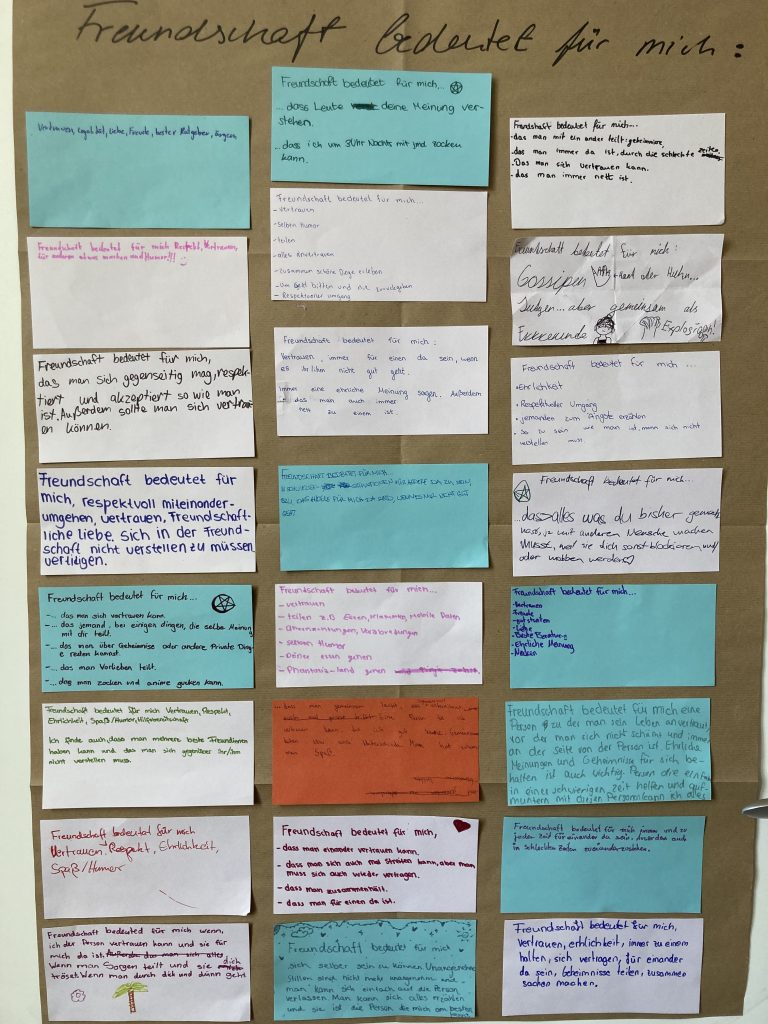 Freundschaft bedeutet für mich:
Vertrauen, Loyalität, Liebe, Freude, bester Ratgeber, ärgern
Freundschaft bedeutet für mich Respekt, Vertrauen,
für anderen etwas machen und Humor!!! :)
Freundschaft bedeutet für mich,
das man sich gegenseitig mag, respek-
tiert und akzeptiert so wie man
ist. Außerdem sollte man sich vertrau-
en können.
Freundschaft bedeutet für
mich, respektvoll miteinander-
umgehen, vertrauen, Freundschaft-
liche liebe, sich in der Freund-
schaft nicht verstellen zu müssen,
verteidigen.
Freundschaft bedeutet für mich...
-... das man sich vertrauen kann.
-... das jemand, bei einigen dingen, die selbe Meinung
mit dir teilt.
-... das man über Geheimnisse oder andere Private Ding-
e reden kannst.
-... das man Vorlieben teilt.
-... das man zocken und anime gucken kann.
Freundschaft bedeutet für mich Vertrauen, Respekt,
Ehrlichkeit, Spaß/Humor, Hilfsbereitschaft
Ich finde auch, dass man mehrere beste Freundinnen
haben kann und das man sich gegenüber ihr/ihm
nicht verstellen muss.
Freundschaft bedeutet für mich
Vertrauen, Respekt, Ehrlichkeit,
Spaß/Humor
Freundschaft bedeuted für mich wenn,
ich der Person vertrauen kann und sie für
mich da ist.
Wenn man Sorgen teilt und sie dich
tröstet. Wenn man durch dick und dünn geht
Freundschaft bedeutet für mich...
...dass Leute deine Meinung ver-
stehen.
...dass ich um 3Uhr Nachts mit jmd zocken
kann.
Freundschaft bedeutet für mich...
- vertrauen
- selben Humor
- teilen
- alles anvertrauen
- zusammen schöne Dinge erleben
- um Geld bitten und nie zurückgeben
- Respektvoller umgang
Freundschaft bedeutet für mich:
Vertrauen, immer für einen da sein, wenn
es ihr/ihm nicht gut geht.
Immer eine ehrliche Meinung sagen. Außerdem
das man auch immer
nett zu einem ist.
FREUNDSCHAFT BEDEUTET FÜR MICH...
GEHT
Freundschaft bedeutet für mich...
- vertrauen
- teilen z.B Essen, Klamotten, Mobile Daten
- Übernachtungen, Verabredungen
- selben Humor
- Döner essen gehen
- Phantasia-land gehen
Freundschaft bedeutet für mich,
- dass man einander vertrauen kann.
- dass man sich auch mal streiten kann, aber man
muss sich auch wieder vertragen.
- dass man zusammenhält.
- dass man für einen da ist.
Freundschaft bedeutet für mich
sich selber sein zu können Unangenehme
Stillen sind nicht mehr unangenehm und
man kann sich einfach auf die Person
verlassen. Man kann sich alles erzählen
und sie ist die Person die mich am besten
kennt
Freundschaft bedeutet für mich...
- das man mit ein ander teilt: geheimnisse,
- das man immer da ist, durch die schlechte zeiten
- Das man sich vertrauen kann.
- das man immer nett ist.
Freundschaft bedeutet für mich:
Gossipen
Judgen... aber gemeinsam als
Explosion!
Freundschaft bedeutet für mich...
• Ehrlichkeit
• Respektvoller Umgang
• jemanden zum Ängste erzählen
• so zu sein wie man ist, man sich nicht
verstellen muss.
Freundschaft bedeutet für mich...
...dass alles was du bisher gemacht
hast, je mit anderen Mensche machen
musst, weil sie dich sonst blockieren wird
oder
Freundschaft bedeutet für mich...
- Vertrauen
- Freude
- gut streiten
- Liebe
- Beste Beratung
- Ehrliche Meinung
- Machen
Freundschaft bedeutet für mich eine
Person zu der man sein Leben anvertraut,
vor der man sich nicht schämt und immer
an der Seite von der Person ist. Ehrliche
Meinungen und Geheimnisse für sich be-
halten ist auch wichtig. Person die einem
in einer schwierigen Zeit helfen und auf-
muntern mit dieser Person kann ich alles
Freundschaft bedeutet für mich immer und zu
jeder Zeit für einander da sein. Ausserdem auch
in schlechten Zeiten zueinanderzustehen.
Freundschaft bedeutet für mich,
vertrauen, erhlichkeit, immer zu einem
halten, sich vertragen, für einander
da sein, Geheimnisse teilen, zusammen
sachen machen.